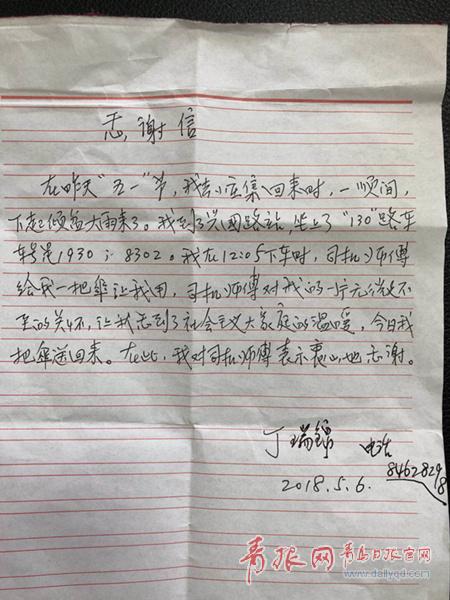 感谢信
在昨天“五一”节，我去小庄集回来时，一瞬间，
下起倾盆大雨来了。我到了兴国路站，坐上了“130”路车
车号是1930；8302。我在12:05下车时，司机师傅
给我一把伞让我用，司机师傅对我的一片无微不
至的关怀，让我感到了社会主义大家庭的温暖，今日我
把伞送回来。在此，我对司机师傅表示衷心地感谢。
丁瑞锦 电话
84628298
2018.5.6.
青报网 青岛日报官网
www.dailyqd.com